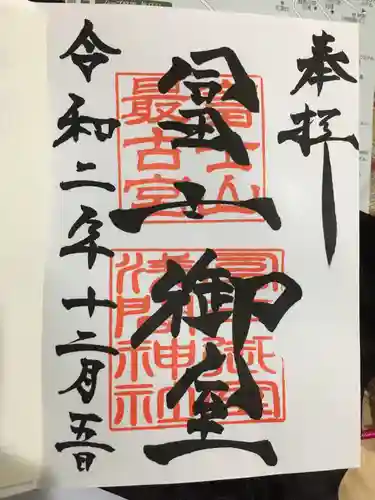 奉拝
冨士山御室
富士山
最古宮
冨士御室
浅間神社
令和二年十二月五日